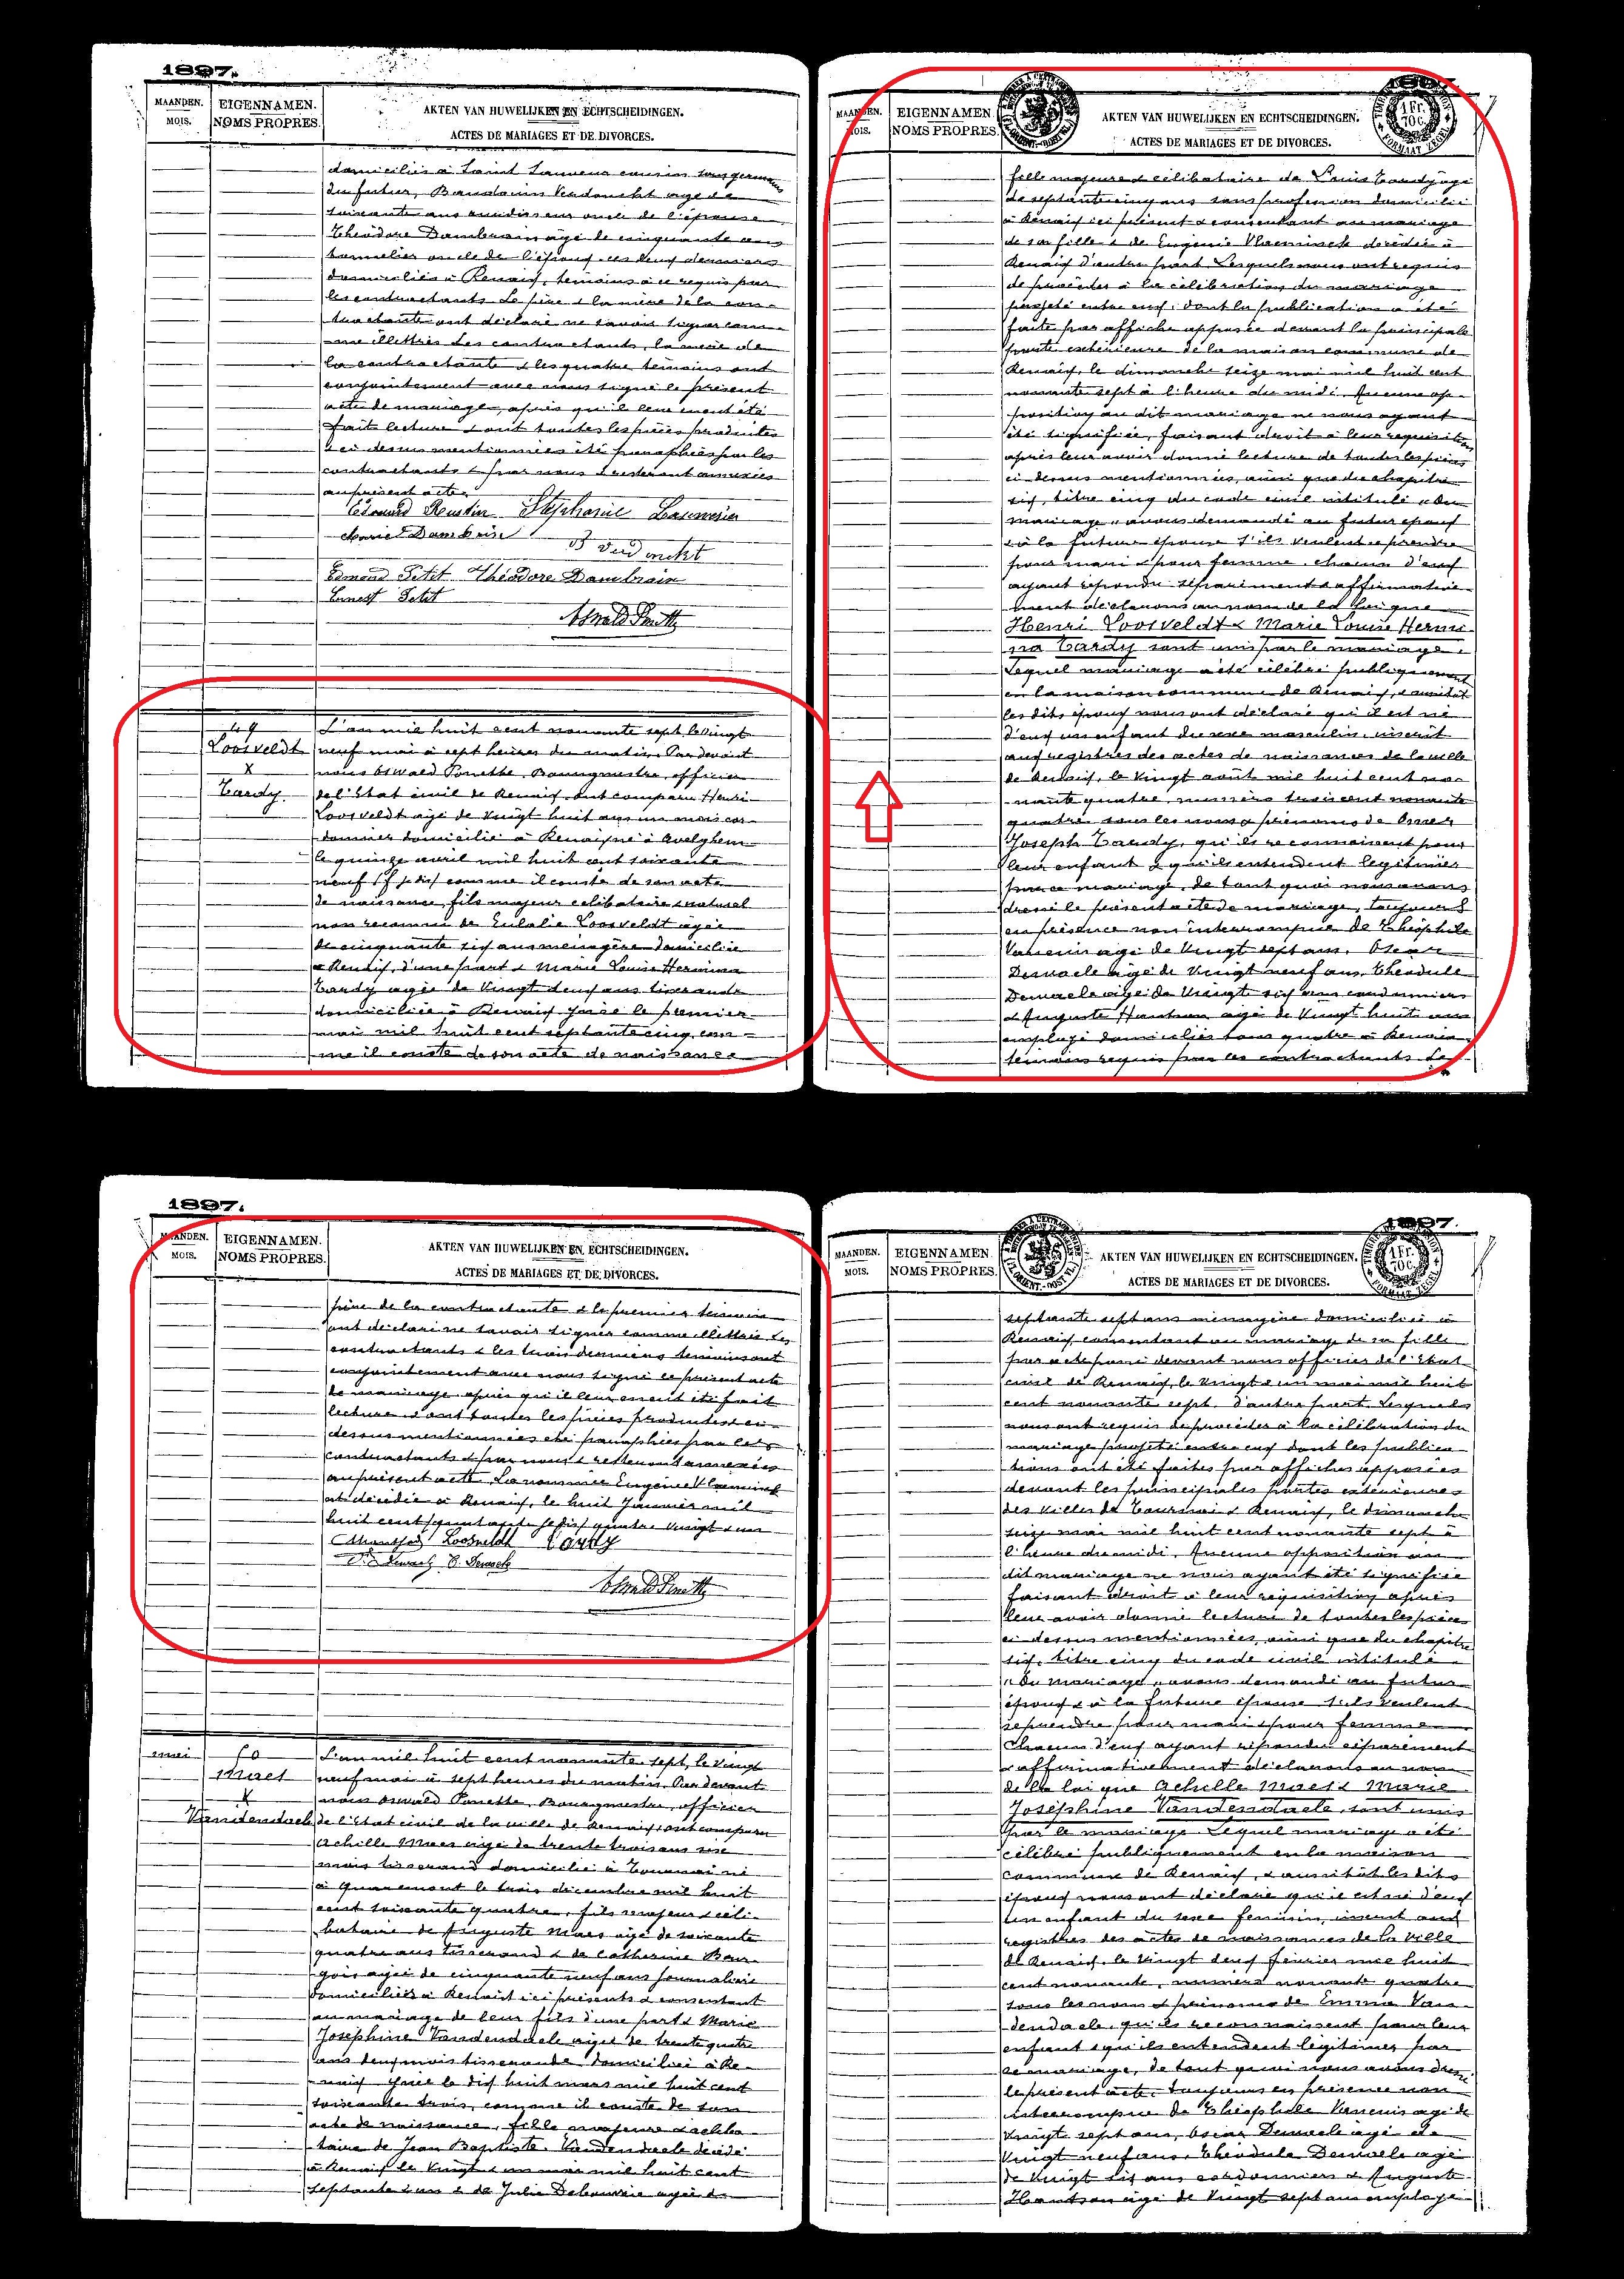 1897.
MAANDEN.
MOIS.
EIGENNAMEN.
NOMS PROPRES.
AKTEN VAN HUWELIJKEN EN ECHTSCHEIDINGEN.
ACTES DE MARIAGES ET DE DIVORCES.
domiciliés à Saint Sauveur cousins sous germains
du futur, Baudouin Verdonckt agé de
soixante ans ourdisseur oncle de l'épouse
Théodore Dambrain agé de cinquante ans
tonnelier oncle de l'époux ces deux derniers
domiciliés à Renaix, témoins à ce requis par
les contractants Le père & la mère de la con-
tractante ont déclaré ne savoir signer com-
me illettrés Les contractants, la mère de
la contractante & les quatre témoins ont
conjointement avec nous signé le présent
acte de mariage, après qu'il leur en eut été
faite lecture & ont toutes les pièces produites
& ci dessus mentionnées été paraphées par les
contractants & par nous & resteront annexées
au présent acte.
Edouard Rustin Stéphanie Lauwerier
Marie Dambrin
B Verdonckt
Edmond Petit Théodore Dambrain
Ernest Petit
Oswald Ponette
49
Loosveldt
X
Tardy.
L'an mil huit cent nonante sept, le vingt
neuf mai à sept heures du matin, Par devant
nous Oswald Ponette, Bourgmestre, officier
de l'Etat civil de Renaix, ont comparu Henri
Loosveldt agé de vingt huit ans un mois cor-
donnier domicilié à Renaix né à Avelghem
le quinze avril mil huit cent soixante
neuf comme il conste de son acte
de naissance, fils majeur célibataire & naturel
non reconnu de Eulalie Loosveldt agée
de cinquante six ans ménagère domiciliée
à Renaix, d'une part & Marie Louise Hermina
Tardy agée de vingt deux ans tisserande
domiciliée à Renaix y née le premier
mai mil huit cent septante cinq com-
me il conste de son acte de naissance
1897.
MAANDEN.
MOIS.
EIGENNAMEN.
NOMS PROPRES.
AKTEN VAN HUWELIJKEN EN ECHTSCHEIDINGEN.
ACTES DE MARIAGES ET DE DIVORCES.
1 Fr.
70 C.
FORMAAT ZEGEL
fille majeure & célibataire de Louis Tardy agé
de septante cinq ans sans profession domicilié
à Renaix ici présent & consentant au mariage
de sa fille & de Eugénie Vlaeminck décédée à
Renaix d'autre part. Lesquels nous ont requis
de procéder à la célébration du mariage
projeté entre eux, dont la publication a été
faite par affiche apposée devant la principale
porte extérieure de la maison commune de
Renaix, le dimanche seize mai mil huit cent
nonante sept à l'heure du midi. Aucune op-
position au dit mariage ne nous ayant
été signifiée, faisant droit à leur réquisition
après leur avoir donné lecture de toutes les pièces
ci-dessus mentionnées, ainsi que du chapitre
six, titre cinq du code civil intitulé "Du
mariage" avons demandé au futur époux
& à la future épouse s'ils veulent se prendre
pour mari & pour femme, chacun d'eux
ayant répondu séparément & affirmative-
ment déclarons au nom de la loi que
Henri Loosveldt & Marie Louise Hermi-
na Tardy sont unis par le mariage.
Lequel mariage a été célébré publiquement
en la maison commune de Renaix, & aussitôt
les dits époux nous ont déclaré qu'il est né
d'eux un enfant du sexe masculin, inscrit
aux registres des actes de naissances de la ville
de Renaix, le vingt août mil huit cent no-
nante quatre, numéro trois cent nonante
quatre sous les noms & prénoms de Omer
Joseph Tardy, qu'ils reconnaissent pour
leur enfant & qu'ils entendent légitimer
par ce mariage, de tout quoi nous avons
dressé le présent acte de mariage, toujours
en présence non interrompue de Théophile
Vaneuin agé de vingt sept ans, Oscar
Dewaele agé de vingt neuf ans, Théodule
Dewaele agé de vingt six ans cordonniers
& Auguste Hautson agé de vingt huit ans
employé domiciliés tous quatre à Renaix
témoins requis par les contractants Le
1897.
MAANDEN.
MOIS.
EIGENNAMEN.
NOMS PROPRES.
AKTEN VAN HUWELIJKEN EN ECHTSCHEIDINGEN.
ACTES DE MARIAGES ET DE DIVORCES.
père de la contractante & le premier témoin
ont déclaré ne savoir signer comme illettrés Les
contractants & les trois derniers témoins ont
conjointement avec nous signé le présent acte
de mariage après qu'il leur en eut été fait
lecture & ont toutes les pièces produites & ci-
dessus mentionnées été paraphées par les
contractants & par nous & resteront annexées
au présent acte. La nommée Eugénie Vlaeminck
est décédée à Renaix, le huit Janvier mil
huit cent quatre vingt & un
Loosveldt Tardy
Dewaele O. Dewaele
Oswald Ponette
mai
50
Maes
X
Vandendaele
L'an mil huit cent nonante sept, le vingt
neuf mai à sept heures du matin, Par devant
nous Oswald Ponette, Bourgmestre, officier
de l'Etat civil de la ville de Renaix, ont comparu
Achille Maes agé de trente trois ans six
mois tisserand domicilié à Tournai né
à Quaremont le trois décembre mil huit
cent soixante quatre, fils majeur & céli-
bataire de Auguste Maes agé de soixante
quatre ans tisserand & de Catherine Bour-
gois agée de cinquante neuf ans journalière
domiciliés à Renaix ici présents & consentant
au mariage de leur fils d'une part & Marie
Joséphine Vandendaele agée de trente quatre
ans deux mois tisserande domiciliée à Re-
naix y née le dix huit mars mil huit cent
soixante trois, comme il conste de son
acte de naissance, fille majeure & céliba-
taire de Jean Baptiste Vandendaele décédé
à Renaix le vingt & un mai mil huit cent
septante & un & de Julie Delauwrie agée de
1897.
MAANDEN.
MOIS.
EIGENNAMEN.
NOMS PROPRES.
AKTEN VAN HUWELIJKEN EN ECHTSCHEIDINGEN.
ACTES DE MARIAGES ET DE DIVORCES.
1 Fr.
70 C.
FORMAAT ZEGEL
septante sept ans ménagère domiciliée à
Renaix, consentant au mariage de sa fille
par acte passé devant nous officier de l'Etat
civil de Renaix, le vingt & un mai mil huit
cent nonante sept, d'autre part. Lesquels
nous ont requis de procéder à la célébration du
mariage projeté entre eux dont les publica-
tions ont été faites par affiches apposées
devant les principales portes extérieures
des villes de Tournai & Renaix, le dimanche
seize mai mil huit cent nonante sept à
l'heure du midi. Aucune opposition au
dit mariage ne nous ayant été signifiée
faisant droit à leur réquisition après
leur avoir donné lecture de toutes les pièces
ci-dessus mentionnées, ainsi que du chapitre
six, titre cinq du code civil intitulé
"Du Mariage" avons demandé au futur
époux & à la future épouse s'ils veulent
se prendre pour mari & pour femme
Chacun d'eux ayant répondu séparément
& affirmativement déclarons au nom
de la loi que Achille Maes & Marie
Joséphine Vandendaele, sont unis
par le mariage. Lequel mariage a été
célébré publiquement en la maison
commune de Renaix, & aussitôt les dits
époux nous ont déclaré qu'il est né d'eux
un enfant du sexe féminin, inscrit aux
registres des actes de naissances de la ville
de Renaix, le vingt deux février mil huit
cent nonante, numéro nonante quatre
sous les noms & prénoms de Emma Van-
dendaele, qu'ils reconnaissent pour leur
enfant & qu'ils entendent légitimer par
ce mariage, de tout quoi nous avons dressé
le présent acte, toujours en présence non
interrompue de Théophile Vaneuin agé de
vingt sept ans, Oscar Dewaele agé de
vingt neuf ans, Théodule Dewaele agé
de vingt six ans cordonniers & Auguste
Hautson agé de vingt sept ans employé